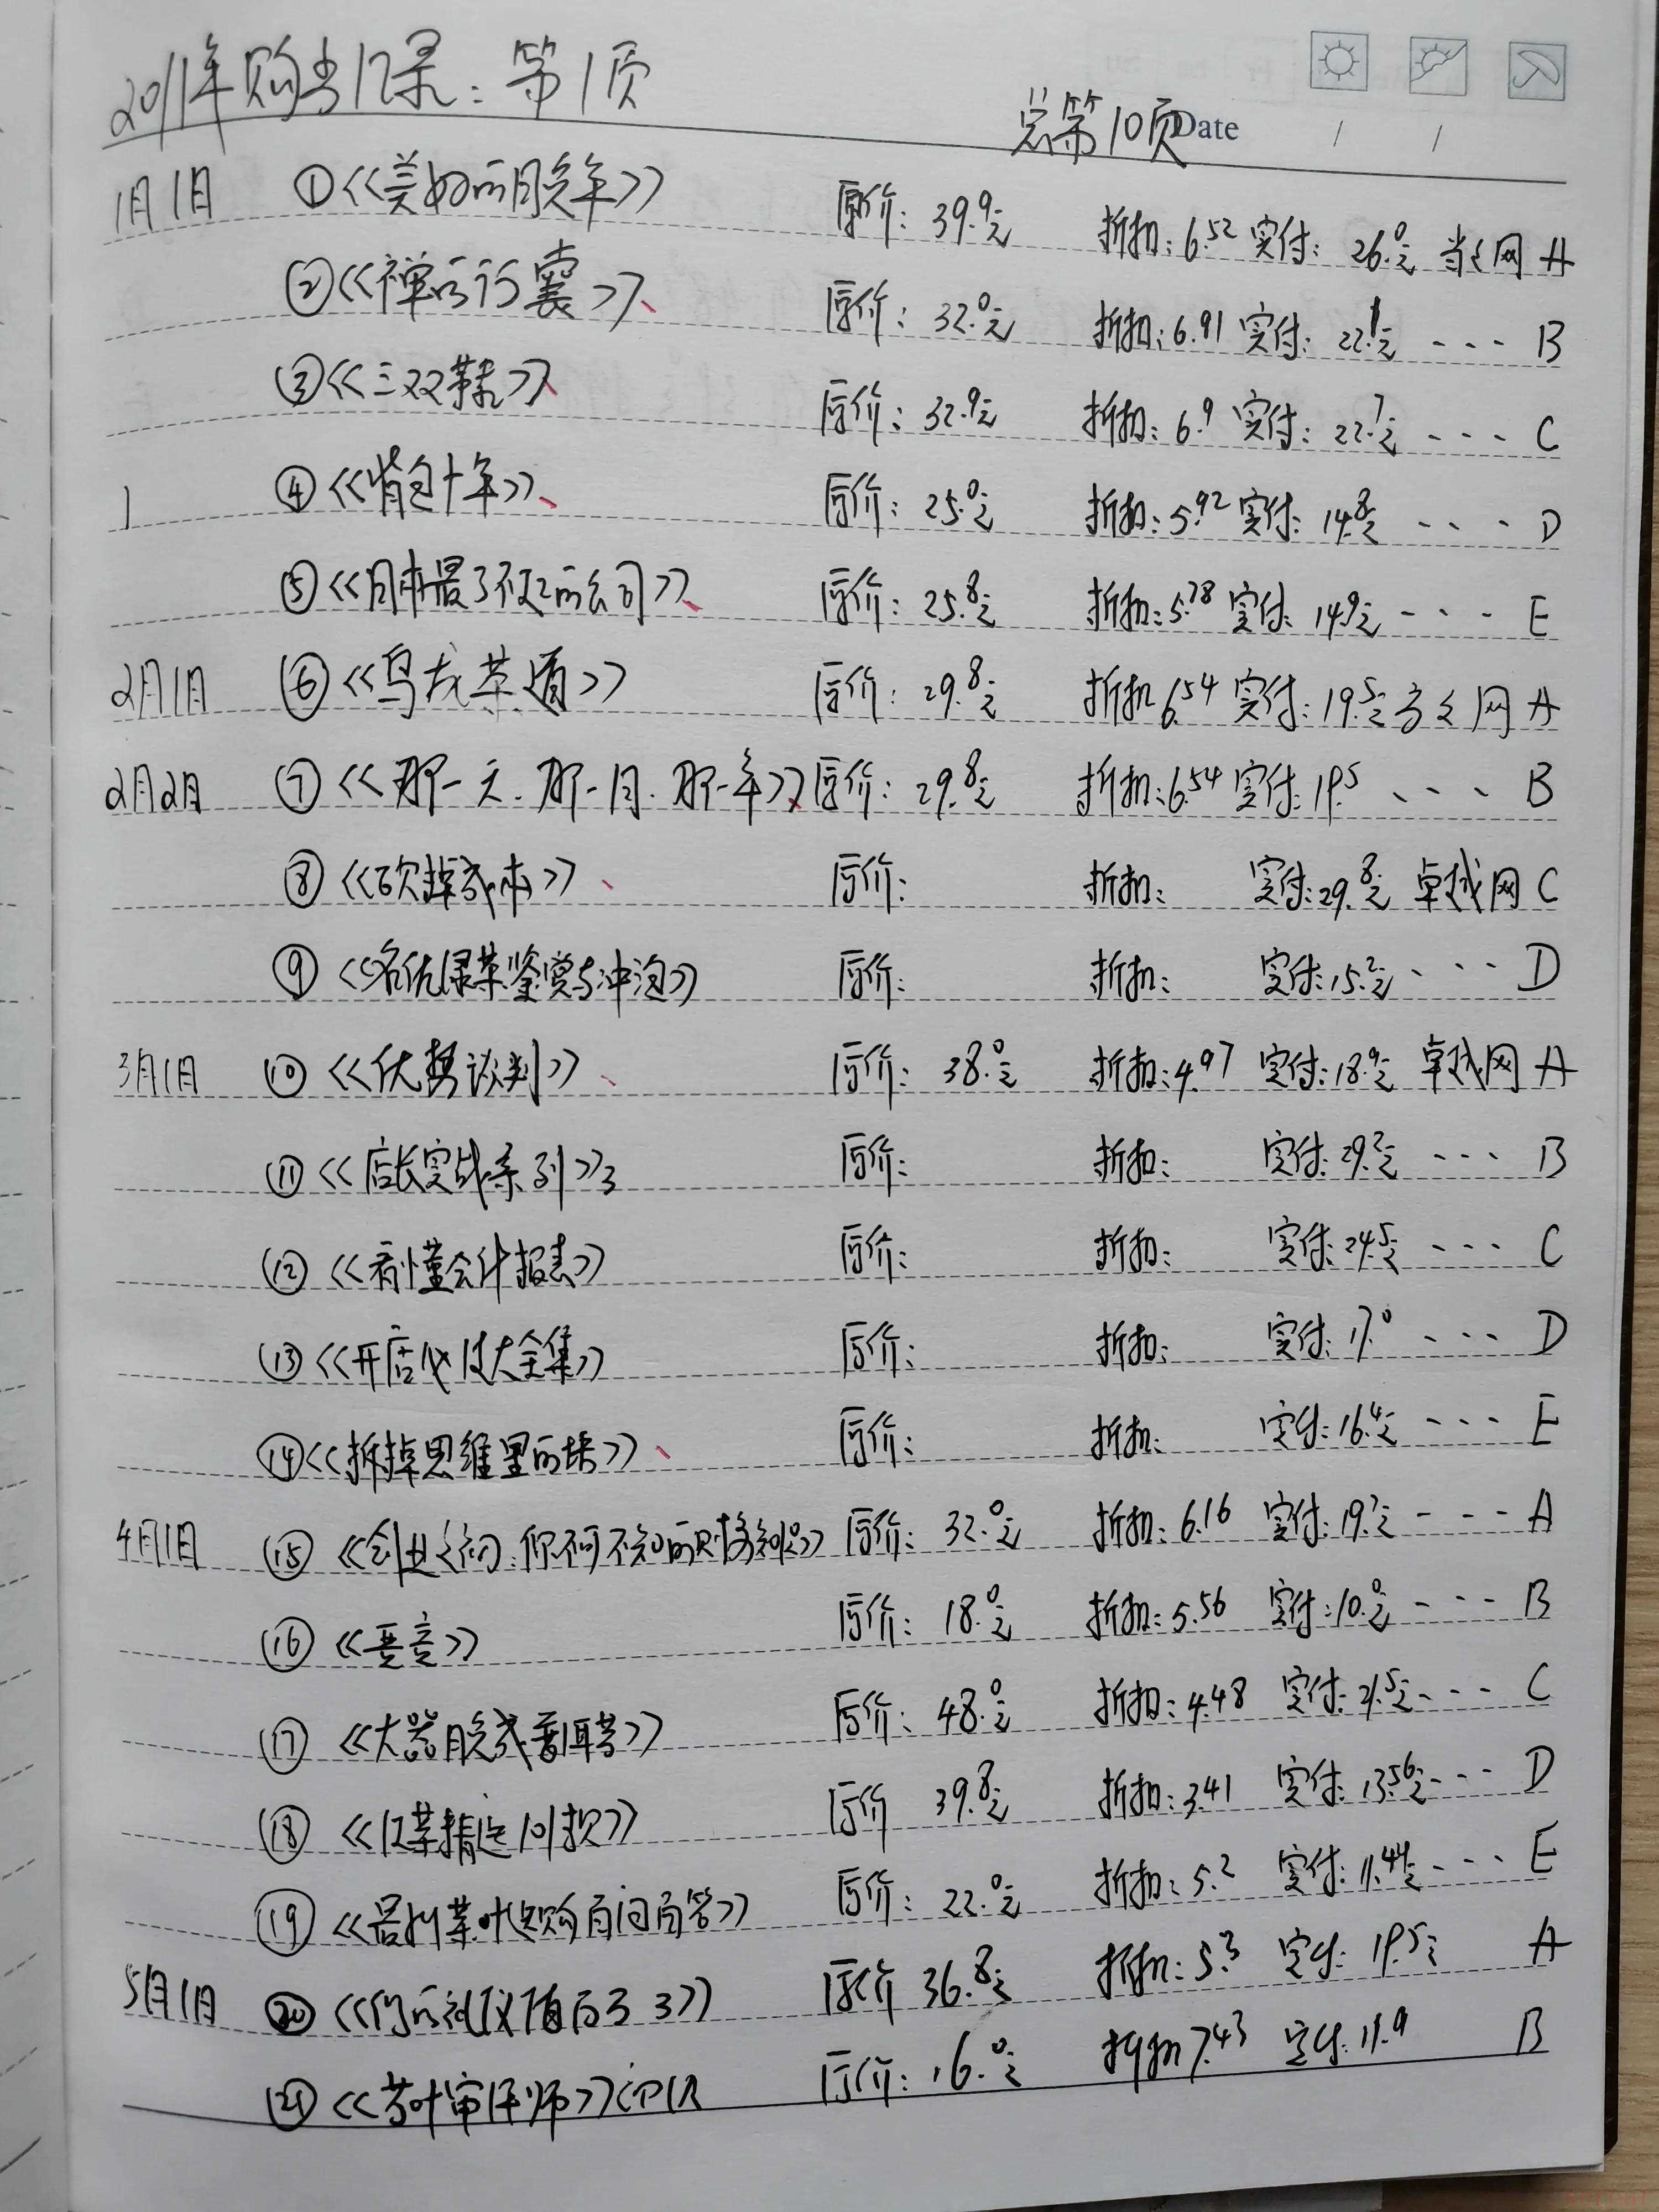 2011年购书记录：第1页
总第10页 Date
1月1日 ①《美好的晚年》 原价：39.9元 折扣：6.52 实付：26.0元 当当网 A
②《禅的行囊》 原价：32.0元 折扣：6.91 实付：22.1元 ---- B
③《三双鞋》 原价：32.9元 折扣：6.9 实付：22.7元 ---- C
1 ④《背包十年》 原价：25.0元 折扣：5.92 实付：14.8元 ---- D
⑤《日本最了不起的公司》 原价：25.8元 折扣：5.78 实付：14.9元 ---- E
2月1日 ⑥《乌龙茶道》 原价：29.8元 折扣 6.54 实付：19.5元 当当网 A
2月2日 ⑦《那一天.那一月.那一年》 原价：29.8元 折扣：6.54 实付：19.5 ---- B
⑧《砍掉成本》 原价： 折扣： 实付：29.8元 卓越网 C
⑨《名优绿茶鉴赏与冲泡》 原价： 折扣： 实付：15.2元 ---- D
3月1日 ⑩《优势谈判》 原价：38.0元 折扣：4.97 实付：18.9元 卓越网 A
⑪《店长实战系列》3 原价： 折扣： 实付：29.2元 ---- B
⑫《看懂会计报表》 原价： 折扣： 实付：24.5元 ---- C
⑬《开店必备大全集》 原价： 折扣： 实付：17.0 ---- D
⑭《拆掉思维里的墙》 原价： 折扣： 实付：16.4元 ---- E
4月1日 ⑮《创业之初.你不可不知的财务知识》 原价：32.0元 折扣：6.16 实付：19.7元 ---- A
⑯ 原价：18.0元 折扣：5.56 实付：10.0元 ---- B
⑰《大器晚成普洱茶》 原价：48.0元 折扣：4.48 实付：21.5元 ---- C
⑱《红茶精选101款》 原价 39.8元 折扣：3.41 实付：13.56元 ---- D
⑲《最新茶叶选购百问百答》 原价：22.0元 折扣：5.2 实付：11.44元 ---- E
5月1日 ⑳《你的礼仪值百万 3》 原价 36.8元 折扣：5.3 实付：19.5元 A
㉑《茶叶审评师》中级 原价：16.0元 折扣 7.43 实付：11.9 B